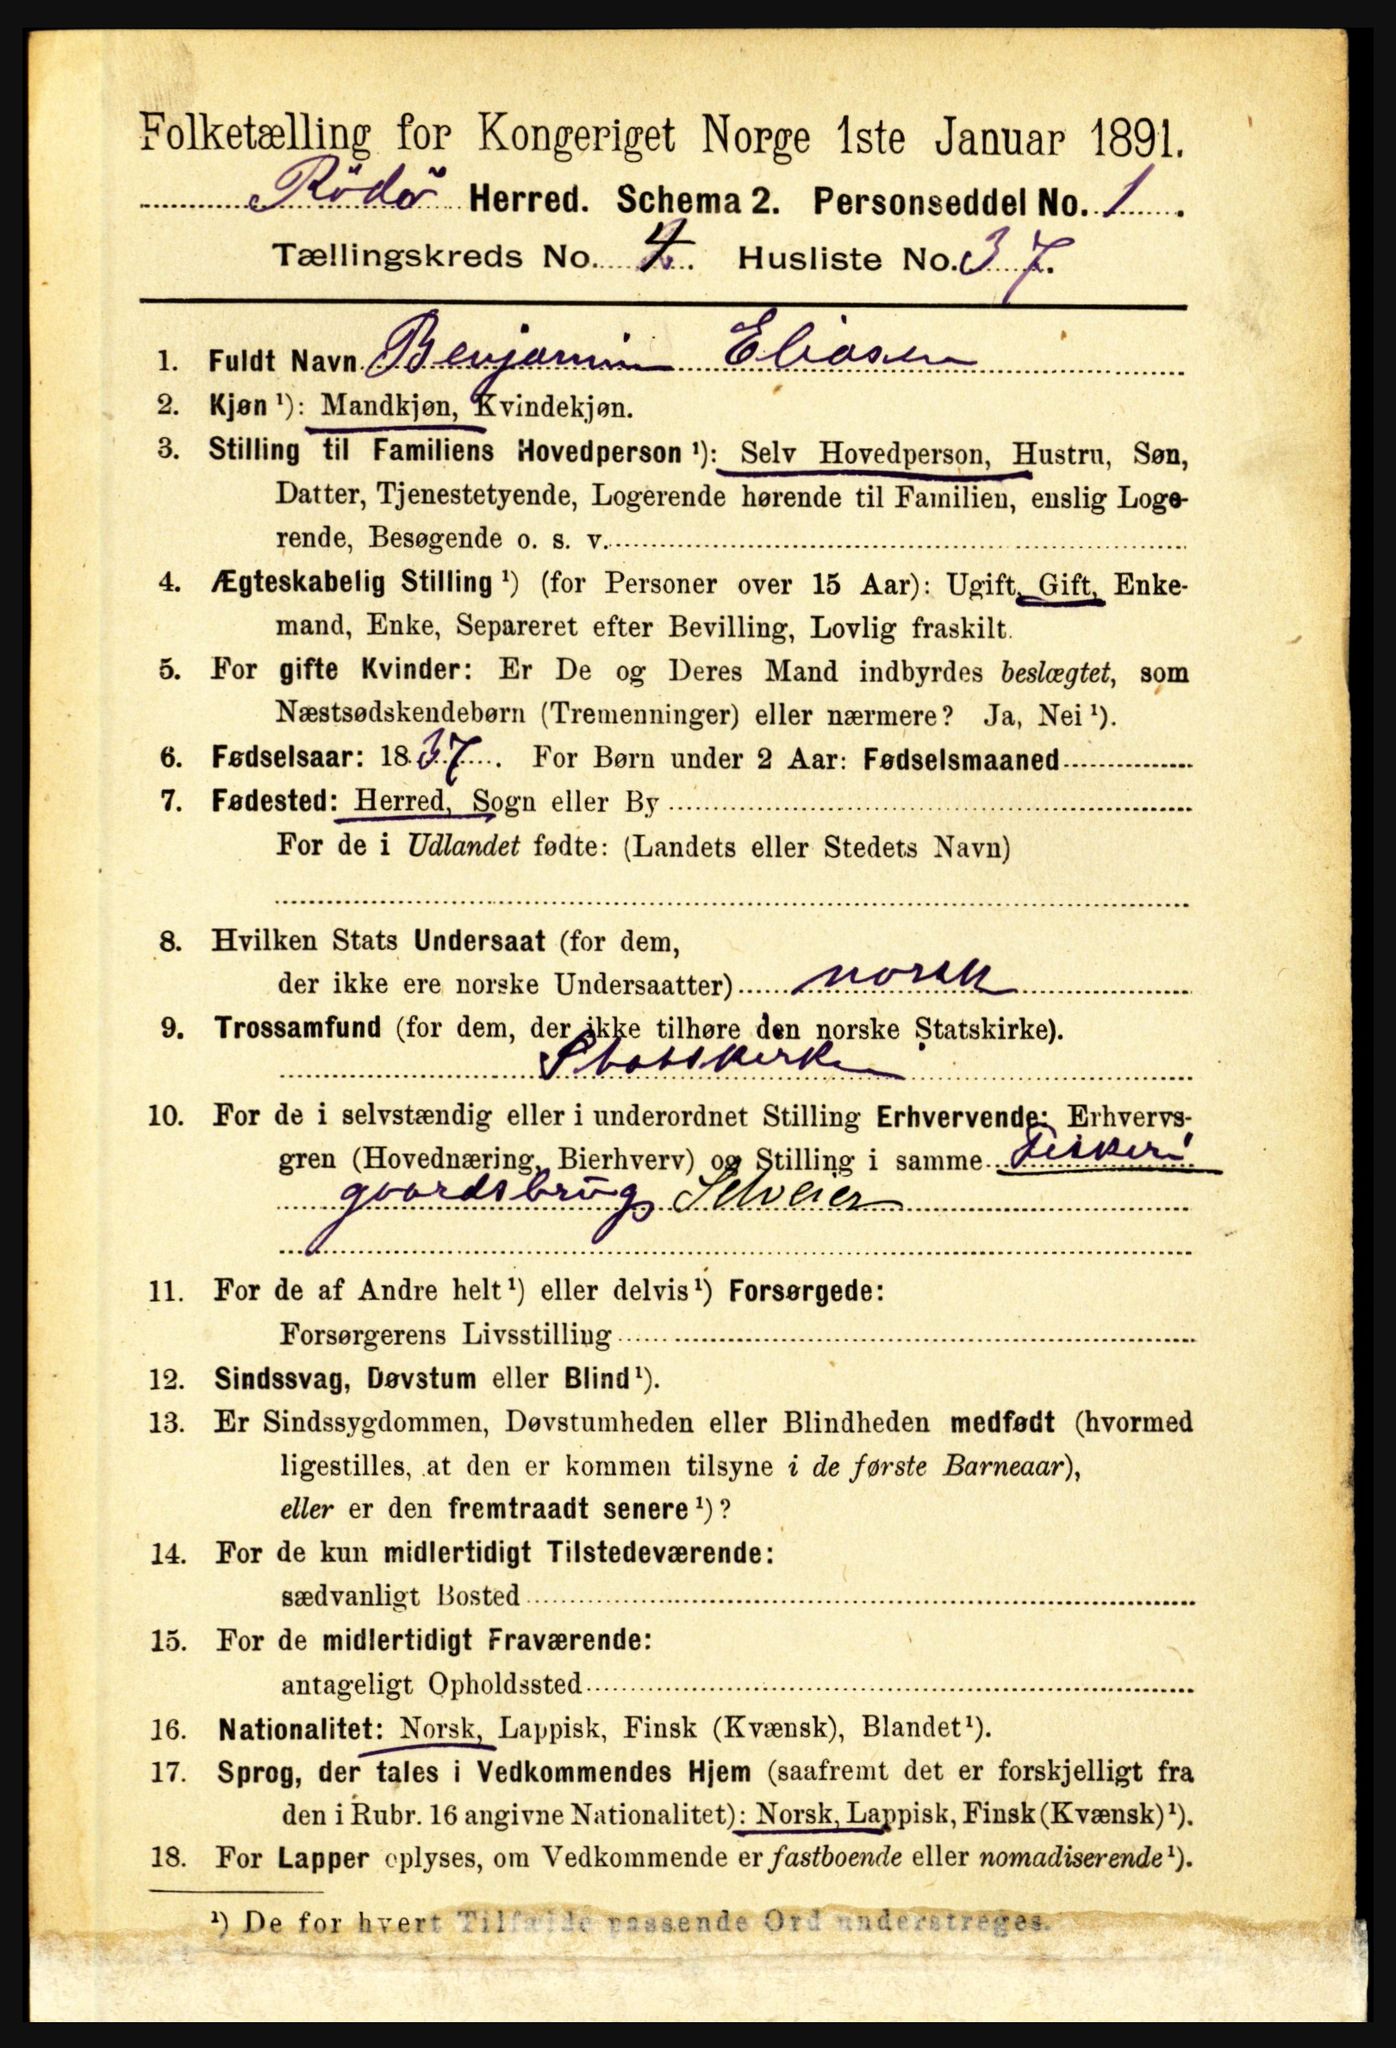 Folketælling for Kongeriget Norge 1ste Januar 1891.
Rödö Herred. Schema 2. Personseddel No. 1.
Tællingskreds No. 4. Husliste No. 37.
1. Fuldt Navn Benjamin Eliasen
2. Kjøn ¹): Mandkjøn, Kvindekjøn.
3. Stilling til Familiens Hovedperson ¹): Selv Hovedperson, Hustru, Søn,
Datter, Tjenestetyende, Logerende hørende til Familien, enslig Loge-
rende, Besøgende o. s. v.
4. Ægteskabelig Stilling ¹) (for Personer over 15 Aar): Ugift, Gift, Enke-
mand, Enke, Separeret efter Bevilling, Lovlig fraskilt.
5. For gifte Kvinder: Er De og Deres Mand indbyrdes beslægtet, som
Næstsødskendebørn (Tremenninger) eller nærmere? Ja, Nei ¹).
6. Fødselsaar: 1837. For Børn under 2 Aar: Fødselsmaaned
7. Fødested: Herred, Sogn eller By
For de i Udlandet fødte: (Landets eller Stedets Navn)
8. Hvilken Stats Undersaat (for dem,
der ikke ere norske Undersaatter) norsk
9. Trossamfund (for dem, der ikke tilhøre den norske Statskirke).
Statskirke
10. For de i selvstændig eller i underordnet Stilling Erhvervende: Erhvervs-
gren (Hovednæring, Bierhverv) og Stilling i samme Fiskeri
gaardsbrug Selveier
11. For de af Andre helt ¹) eller delvis ¹) Forsørgede:
Forsørgerens Livsstilling
12. Sindssvag, Døvstum eller Blind ¹).
13. Er Sindssygdommen, Døvstumheden eller Blindheden medfødt (hvormed
ligestilles, at den er kommen tilsyne i de første Barneaar),
eller er den fremtraadt senere ¹)?
14. For de kun midlertidigt Tilstedeværende:
sædvanligt Bosted
15. For de midlertidigt Fraværende:
antageligt Opholdssted
16. Nationalitet: Norsk, Lappisk, Finsk (Kvænsk), Blandet ¹).
17. Sprog, der tales i Vedkommendes Hjem (saafremt det er forskjelligt fra
den i Rubr. 16 angivne Nationalitet): Norsk, Lappisk, Finsk (Kvænsk) ¹).
18. For Lapper oplyses, om Vedkommende er fastboende eller nomadiserende ¹).
¹) De for hvert Tilfælde passende Ord understreges.